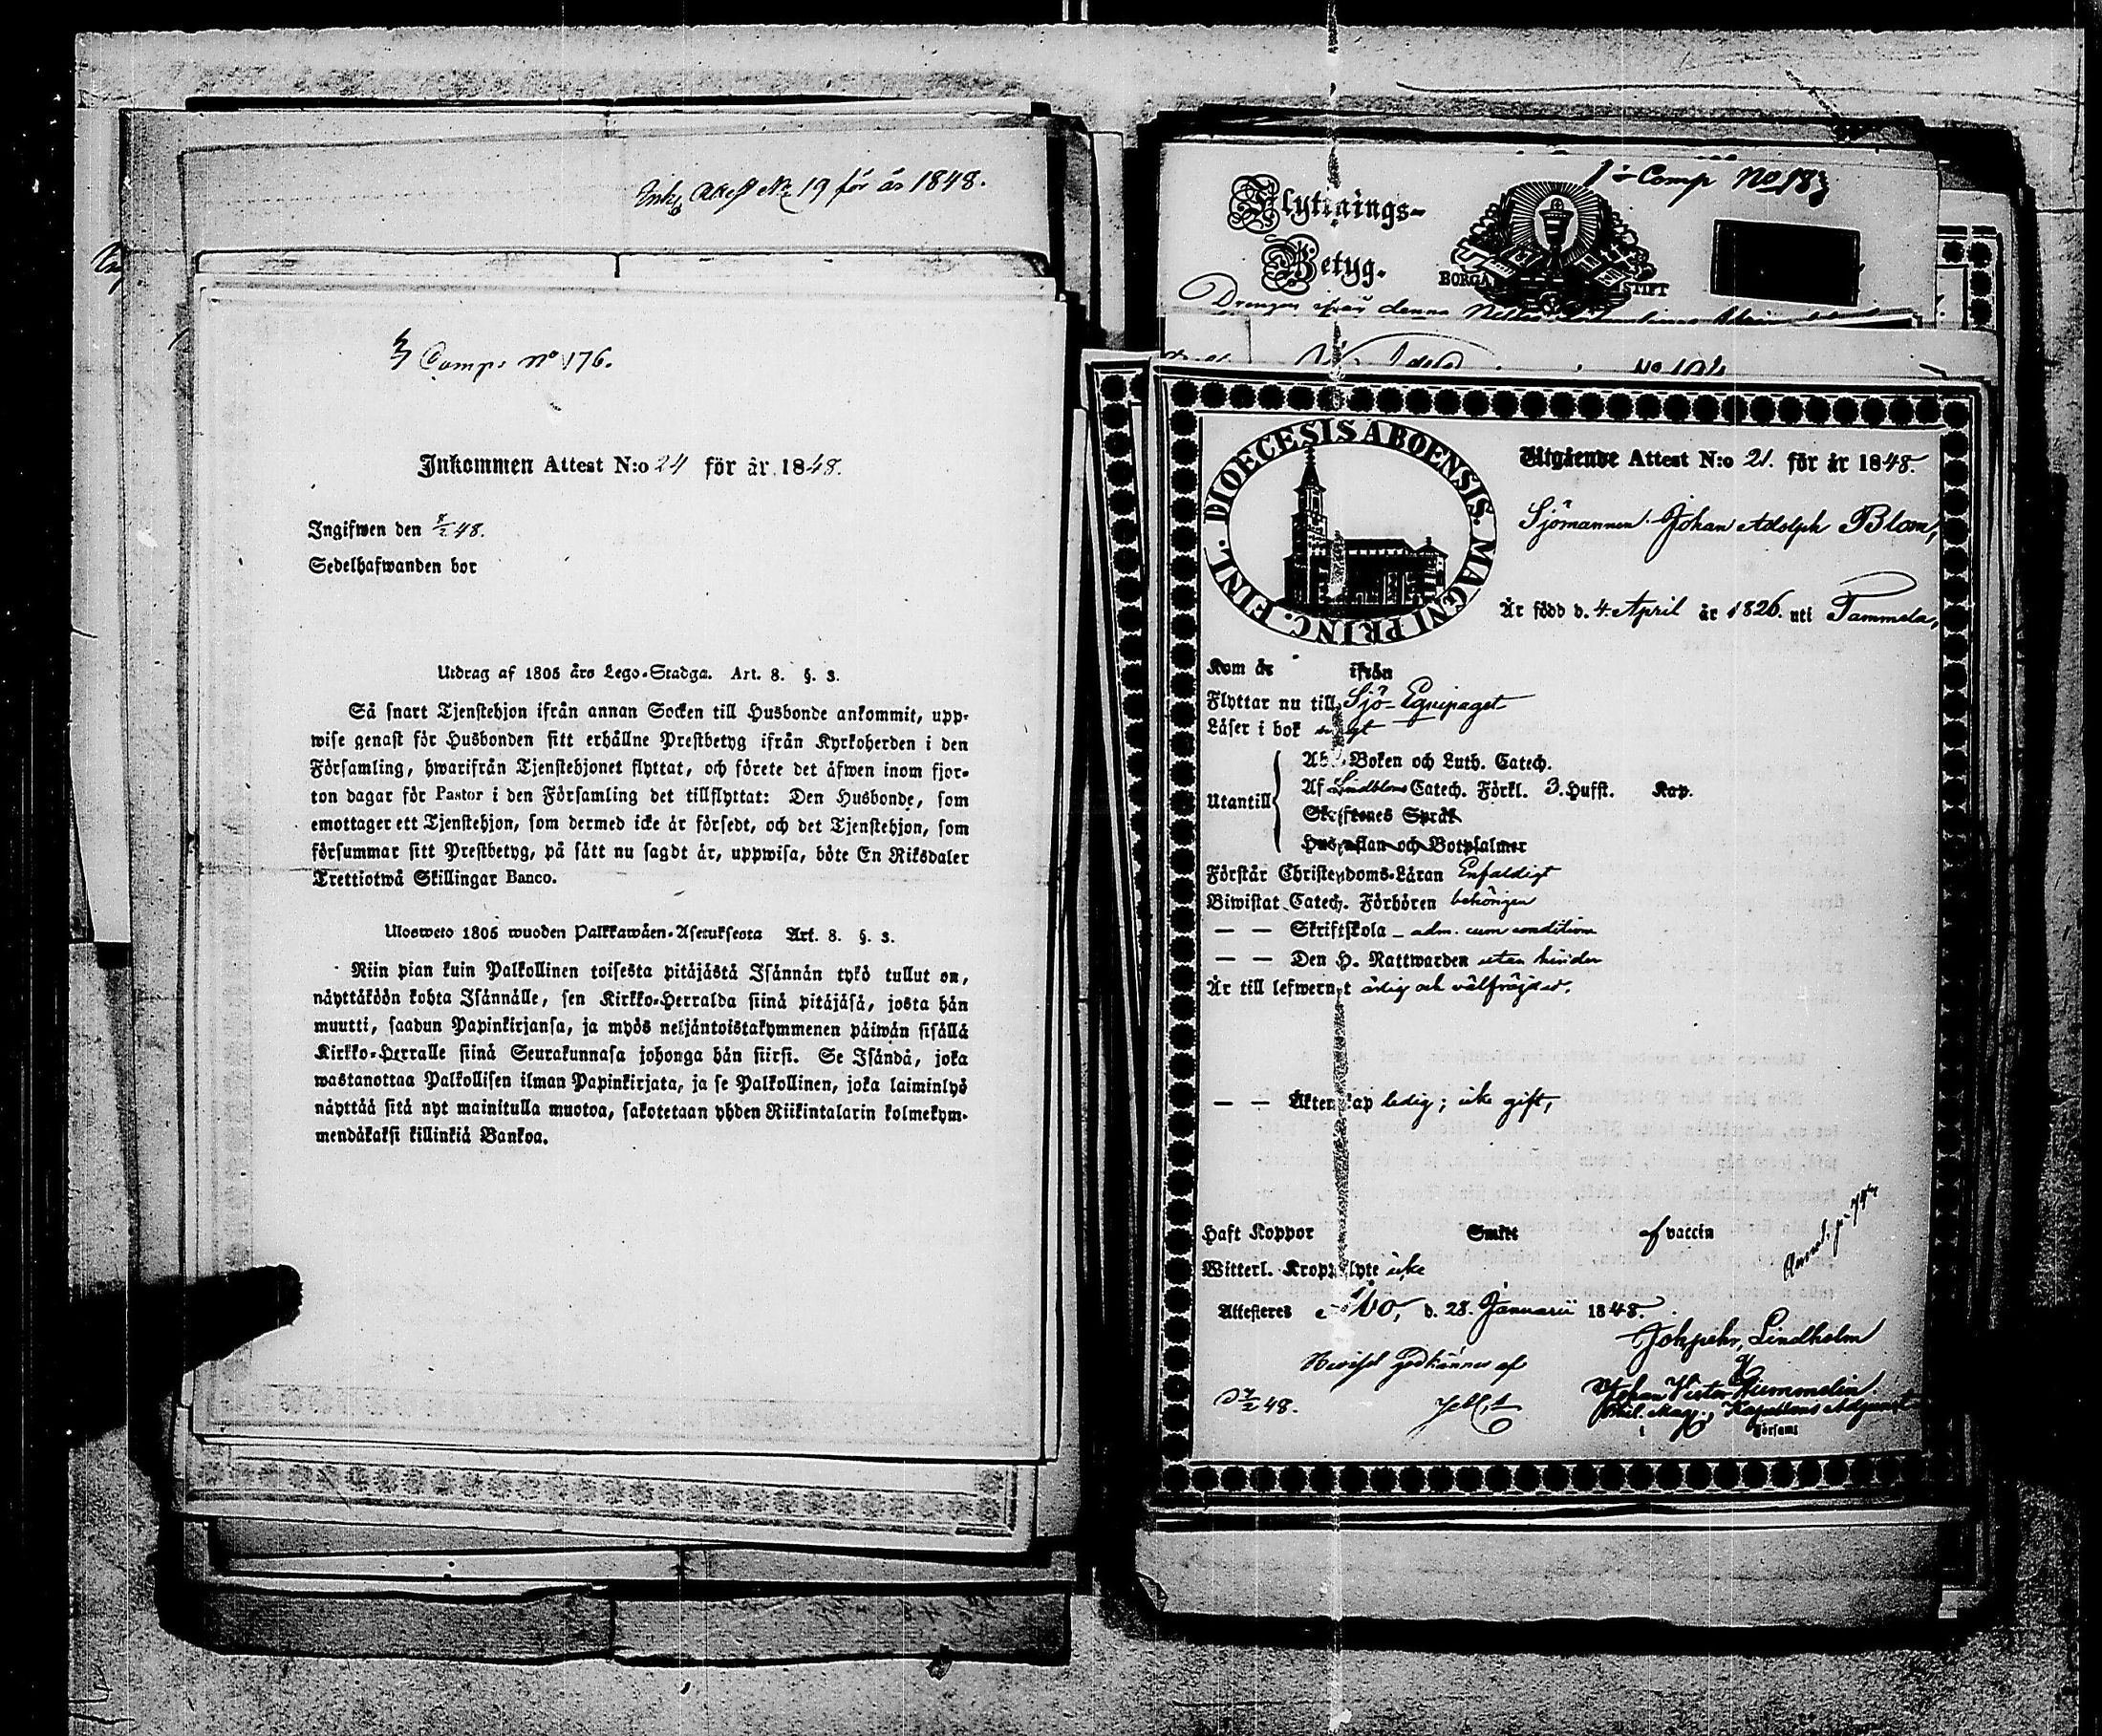 Attest No 19 för år 1848.
3 Comp: No 176.
Inkommen Attest N:o 24 för år 1848.
Ingifwen den 8/2 48.
Sedelhafwanden bor
Utdrag af 1805 års Lego-Stadga. Art. 8. §. 3.
Så snart Tjenstehjon ifrån annan Socken till Husbonde ankommit, upp-
wise genast för Husbonden sitt erhållne Prestbetyg ifrån Kyrkoherden i den
Församling, hwarifrån Tjenstehjonet flyttat, och förete det äfwen inom fjor-
ton dagar för Pastor i den Församling det tillflyttat: Den Husbonde, som
emottager ett Tjenstehjon, som dermed icke är försedt, och det Tjenstehjon, som
försummar sitt Prestbetyg, på sätt nu sagdt är, uppwisa, böte En Riksdaler
Trettiotwå Skillingar Banco.
Uloswето 1805 wuoden Palkkawäen-Asetuksesta Art. 8. §. 3.
Niin pian kuin Palkollinen toisesta pitäjästä Isännän tykö tullut on,
näyttäköön kohta Isännälle, sen Kirkko-Herralda siinä pitäjäsä, josta hän
muutti, saadun Papinkirjansa, ja myös neljäntoistakymmenen päiwän sisällä
Kirkko-Herralle siinä Seurakunnasa johonga hän siirsi. Se Isändä, joka
wastanottaa Palkollisen ilman Papinkirjata, ja se Palkollinen, joka laiminlyö
näyttää sitä nyt mainitulla muotoa, sakotetaan yhden Riikintalarin kolmekym-
mendäkaksi killinkiä Bankoa.
1:s Comp No 183
Flyttnings-
Betyg.
BORGÅ STIFT
Drengen ifrån denna
DIOECESIS ABOENSIS. MAGNI PRINC. FINL.
Utgående Attest N:o 21. för år 1848.
Sjömannen Johan Adolph Blom,
Är född d. 4. April år 1826. uti Tammela,
Kom år ifrån
Flyttar nu till Sjö-Equipaget
Läser i bok
Utantill
Ab Boken och Luth. Catech.
Af Lindbloms Catech. Förkl. 3. Hufst. Kap.
Skriftenes Språk
Hustaflan och Botpsalmer
Förstår Christendoms-Läran Enfaldigt
Biwistat Catech. Förhören behörigen
— — Skriftskola – adm. cum conditione
— — Den H. Nattwarden utan hinder
Är till lefwernet ärlig och välfräjdad.
— — Äktenskap ledig; icke gift,
Haft Koppor Smitt af vaccin
Witterl. Kroppslyte icke
Attesteres Åbo, d. 28. Januarii 1848.
Lindholm
godkännes af
d 7/2 48.
Johan Victor Hummelin.
Phil. Mag., Kapellans Adjunct
i Församl